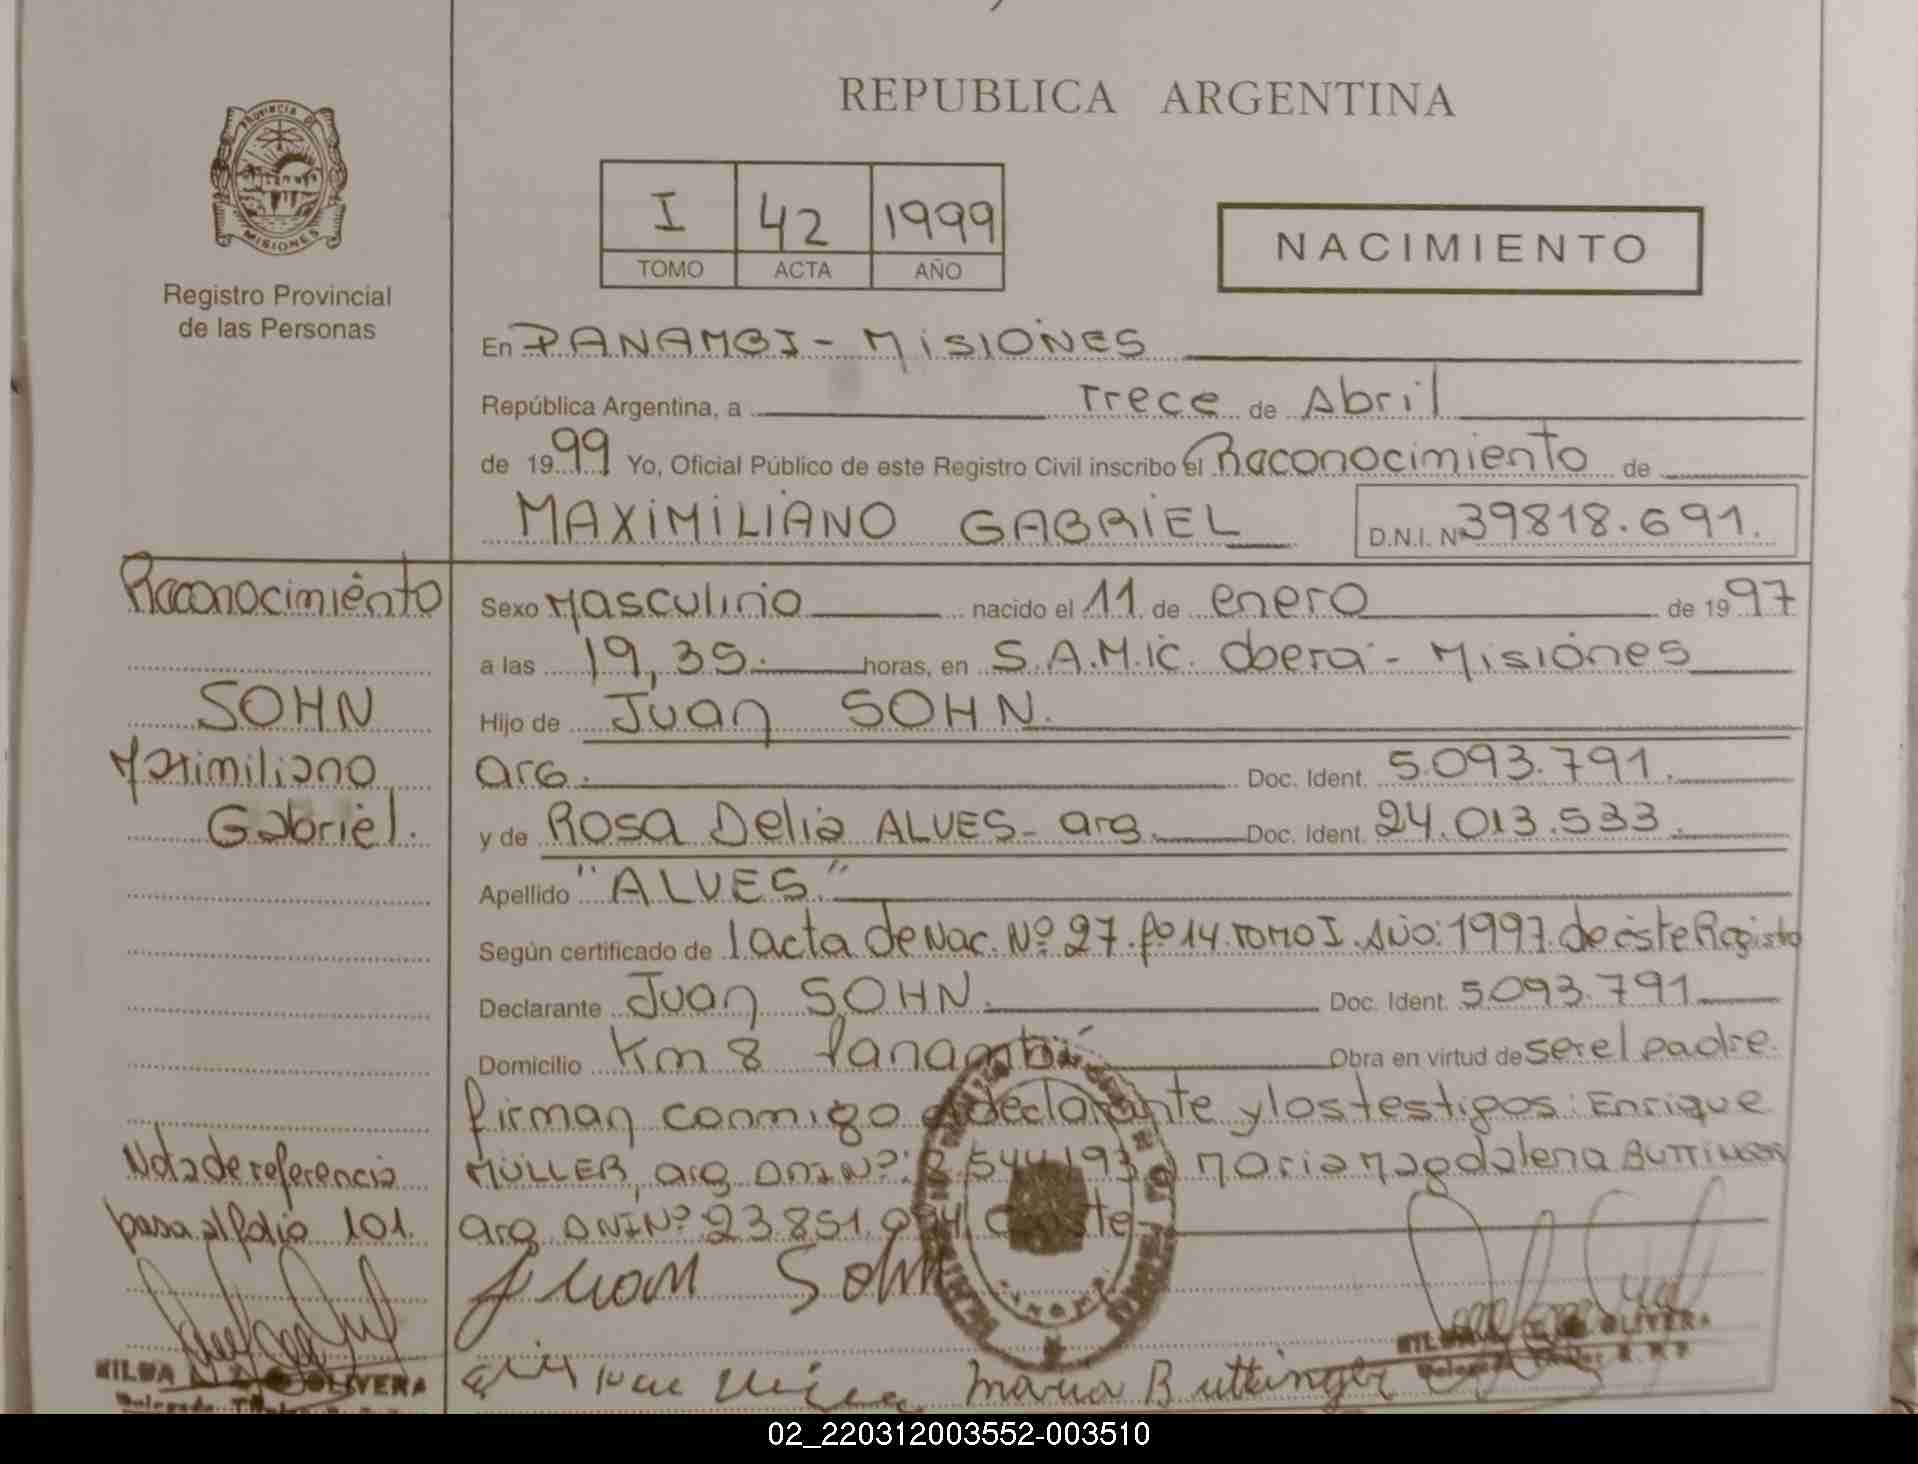 PROVINCIA DE
MISIONES
Registro Provincial
de las Personas
REPUBLICA ARGENTINA
I 42 1999
TOMO ACTA AÑO
NACIMIENTO
En PANAMBI - MISIONES
República Argentina, a Trece de Abril
de 1999 Yo, Oficial Público de este Registro Civil inscribo el Reconocimiento de
MAXIMILIANO GABRIEL D.N.I. Nº 39818.691.
Reconocimiento
SOHN
Maximiliano
Gabriel.
Sexo Masculino nacido el 11 de enero de 1997
a las 19,35. horas, en S.A.M.ic. Obera - Misiones
Hijo de Juan SOHN.
arg. Doc. Ident. 5.093.791.
y de Rosa Delia ALVES - arg. Doc. Ident. 24.013.533.
Apellido "ALVES."
Según certificado de 1 acta de Nac. Nº 27. fº 14. TOMO I. AÑO: 1997. de éste Registro
Declarante Juan SOHN. Doc. Ident. 5.093.791
Domicilio Km 8 Panambí Obra en virtud de ser el padre.
firman conmigo el declarante y los testigos: Enrique
MÜLLER, arg. DNI Nº: 544.193 Maria Magdalena BUTTINGER
arg. DNI Nº 23.851.
Nota de referencia
pasa al folio 101.
Juan Sohn
Maria Buttinger
HILDA OLIVERA
Delegada Titular
OLIVERA
02_220312003552-003510